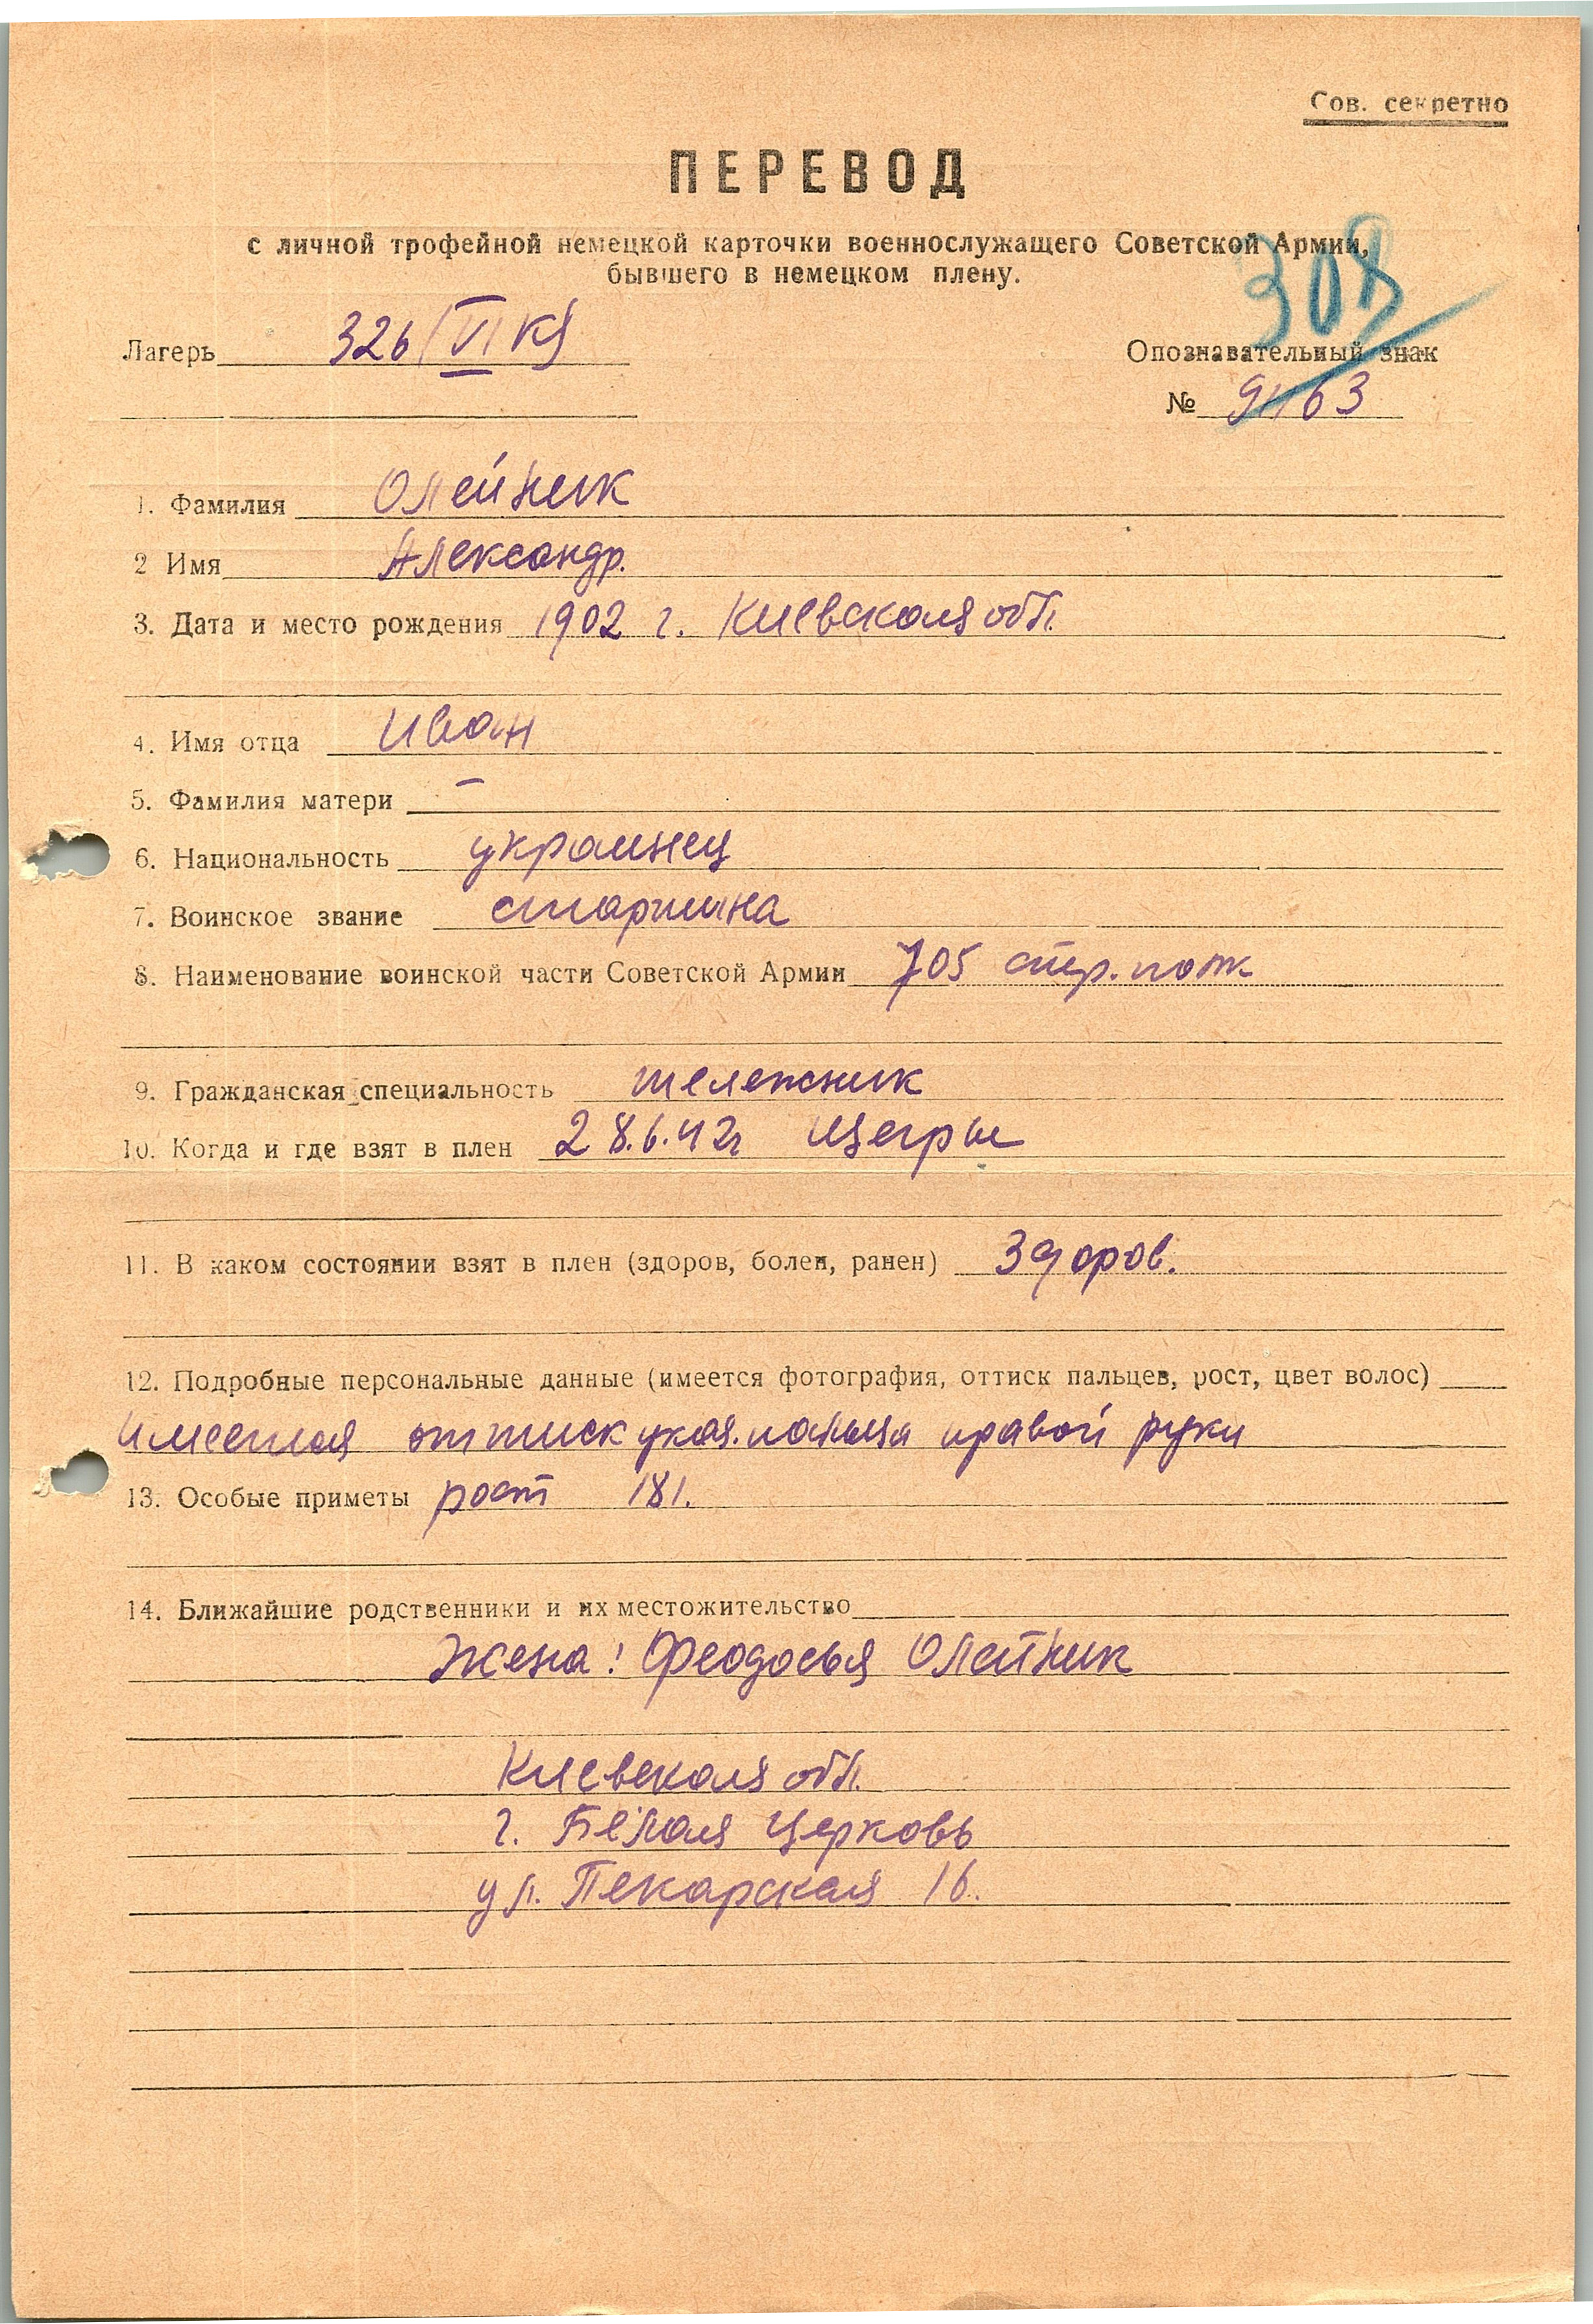 Сов. секретно
ПЕРЕВОД
с личной трофейной немецкой карточки военнослужащего Советской Армии,
бывшего в немецком плену.
308
Лагерь 326 (VI К)
Опознавательный знак
№ 9163
1. Фамилия Олейник
2 Имя Александр.
3. Дата и место рождения 1902 г. Киевская обл.
4. Имя отца Иван
5. Фамилия матери –
6. Национальность украинец
7. Воинское звание старшина
8. Наименование воинской части Советской Армии 705 стр. полк
9. Гражданская специальность тележник
10. Когда и где взят в плен 28.6.42г Щегры
11. В каком состоянии взят в плен (здоров, болен, ранен) Здоров.
12. Подробные персональные данные (имеется фотография, оттиск пальцев, рост, цвет волос)
имеется оттиск указ. пальца правой руки
13. Особые приметы рост 181.
14. Ближайшие родственники и их местожительство
Жена: Феодосья Олейник
Киевская обл.
г. Белая Церковь
ул. Пекарская 16.